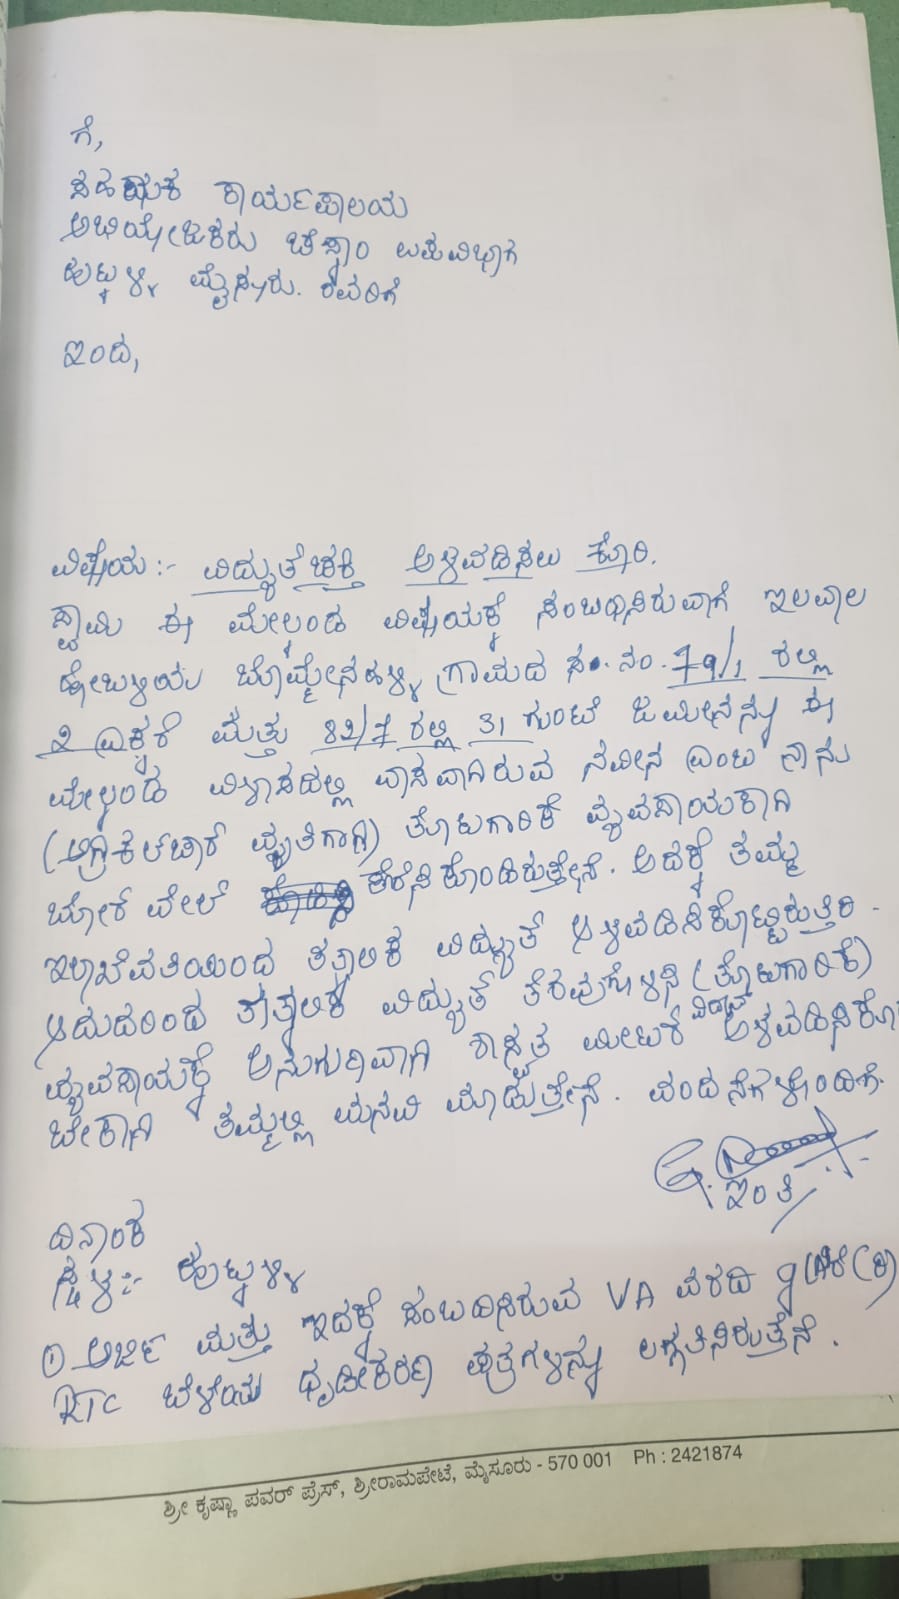 ಗೆ,
ಸಹಾಯಕ ಕಾರ್ಯಪಾಲಯ
ಅಭಿಯೋಜಕರು ಚೆಸ್ಕಾಂ ಉಪವಿಭಾಗ
ಹುಟ್ಟುಳ್ಳಿ ಮೈಸೂರು. ರವರಿಗೆ
ಇಂದ,
ವಿಷಯ:- ವಿದ್ಯುತ್ ಚಕ್ತಿ ಅಳವಡಿಸಲು ಕೋರಿ.
ಸ್ವಾಮಿ ಈ ಮೇಲ್ಕಂಡ ವಿಷಯಕ್ಕೆ ಸಂಬಂಧಿಸಿರುವಾಗೆ ಇಲವಾಲ
ಹೋಬಳಿಯ ಬೊಮ್ಮೇನಹಳ್ಳಿ ಗ್ರಾಮದ ಸ. ನಂ. 79/1 ರಲ್ಲಿ
2 ಎಕ್ಕರೆ ಮತ್ತು 82/7 ರಲ್ಲಿ 31 ಗುಂಟೆ ಜಮೀನನ್ನು ಈ
ಮೇಲ್ಕಂಡ ವಿಳಾಸದಲ್ಲಿ ವಾಸವಾಗಿರುವ ನವೀನ ಎಂಬ ನಾನು
(ಅಗ್ರಿಕಲ್ಚಾರ್ ವೃತಿಗಾಗಿ) ತೋಟಗಾರಿಕೆ ವ್ಯವಸಾಯಕ್ಕಾಗಿ
ಬೋರ್ ವೇಲ್ ಕೊರೆಸಿಕೊಂಡಿರುತ್ತೇನೆ. ಅದಕ್ಕೆ ತಮ್ಮ
ಇಲಾಖೆವತಿಯಿಂದ ತತ್ಕಾಲಿಕ ವಿದ್ಯುತ್ ಅಳವಡಿಸಿಕೊಟ್ಟಿರುತ್ತರಿ.
ಆದುದರಿಂದ ತಾತ್ಕಾಲಿಕ ವಿದ್ಯುತ್ ತೆರವುಗೊಳಿಸಿ (ತೋಟಗಾರಿಕೆ)
ವ್ಯವಸಾಯಕ್ಕೆ ಅನುಗುಣವಾಗಿ ಶಾಸ್ವತ ಮೀಟರ್ ಅಳವಡಿಸಿಕೊ
ಬೇಕಾಗಿ ತಮ್ಮಲ್ಲಿ ಮನವಿ ಮಾಡುತ್ತೇನೆ. ವಂದನೆಗಳೊಂದಿಗೆ.
ಇಂತಿ
ದಿನಾಂಕ
ಸ್ಥಳ:- ಹುಟ್ಟುಳ್ಳಿ
① ಅರ್ಜಿ ಮತ್ತು ಇದಕ್ಕೆ ಸಂಬಂದಿಸಿರುವ VA ವರದಿ
RTC ಬೆಳೆಯ ಧೃಡೀಕರಣ ಪತ್ರಗಳನ್ನು ಲಗ್ಗತಿಸಿರುತ್ತೆನೆ.
ಶ್ರೀ ಕೃಷ್ಣಾ ಪವರ್ ಪ್ರೆಸ್, ಶ್ರೀರಾಮಪೇಟೆ, ಮೈಸೂರು - 570 001 Ph : 2421874